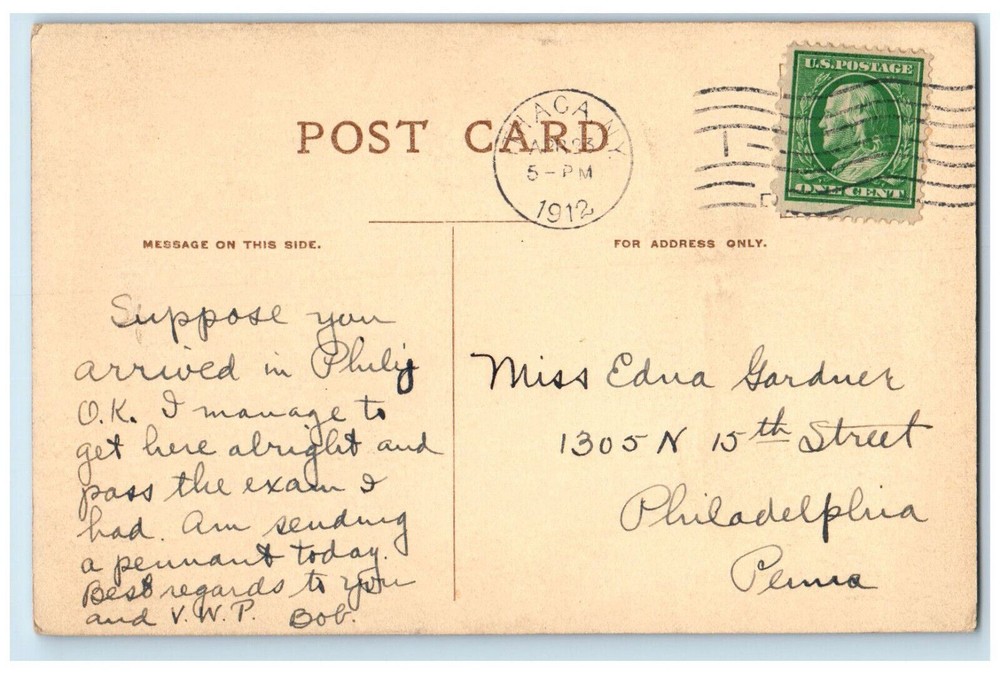 U.S. POSTAGE
ONE CENT
POST CARD
ITHACA N.Y.
APR 23
5-PM
1912
MESSAGE ON THIS SIDE.
FOR ADDRESS ONLY.
Suppose you
arrived in Philly
O.K. I manage to
get here alright and
pass the exam I
had. Am sending
a pennant today.
Best regards to you
and V.W.P. Bob.
Miss Edna Gardner
1305 N 15th Street
Philadelphia
Penna